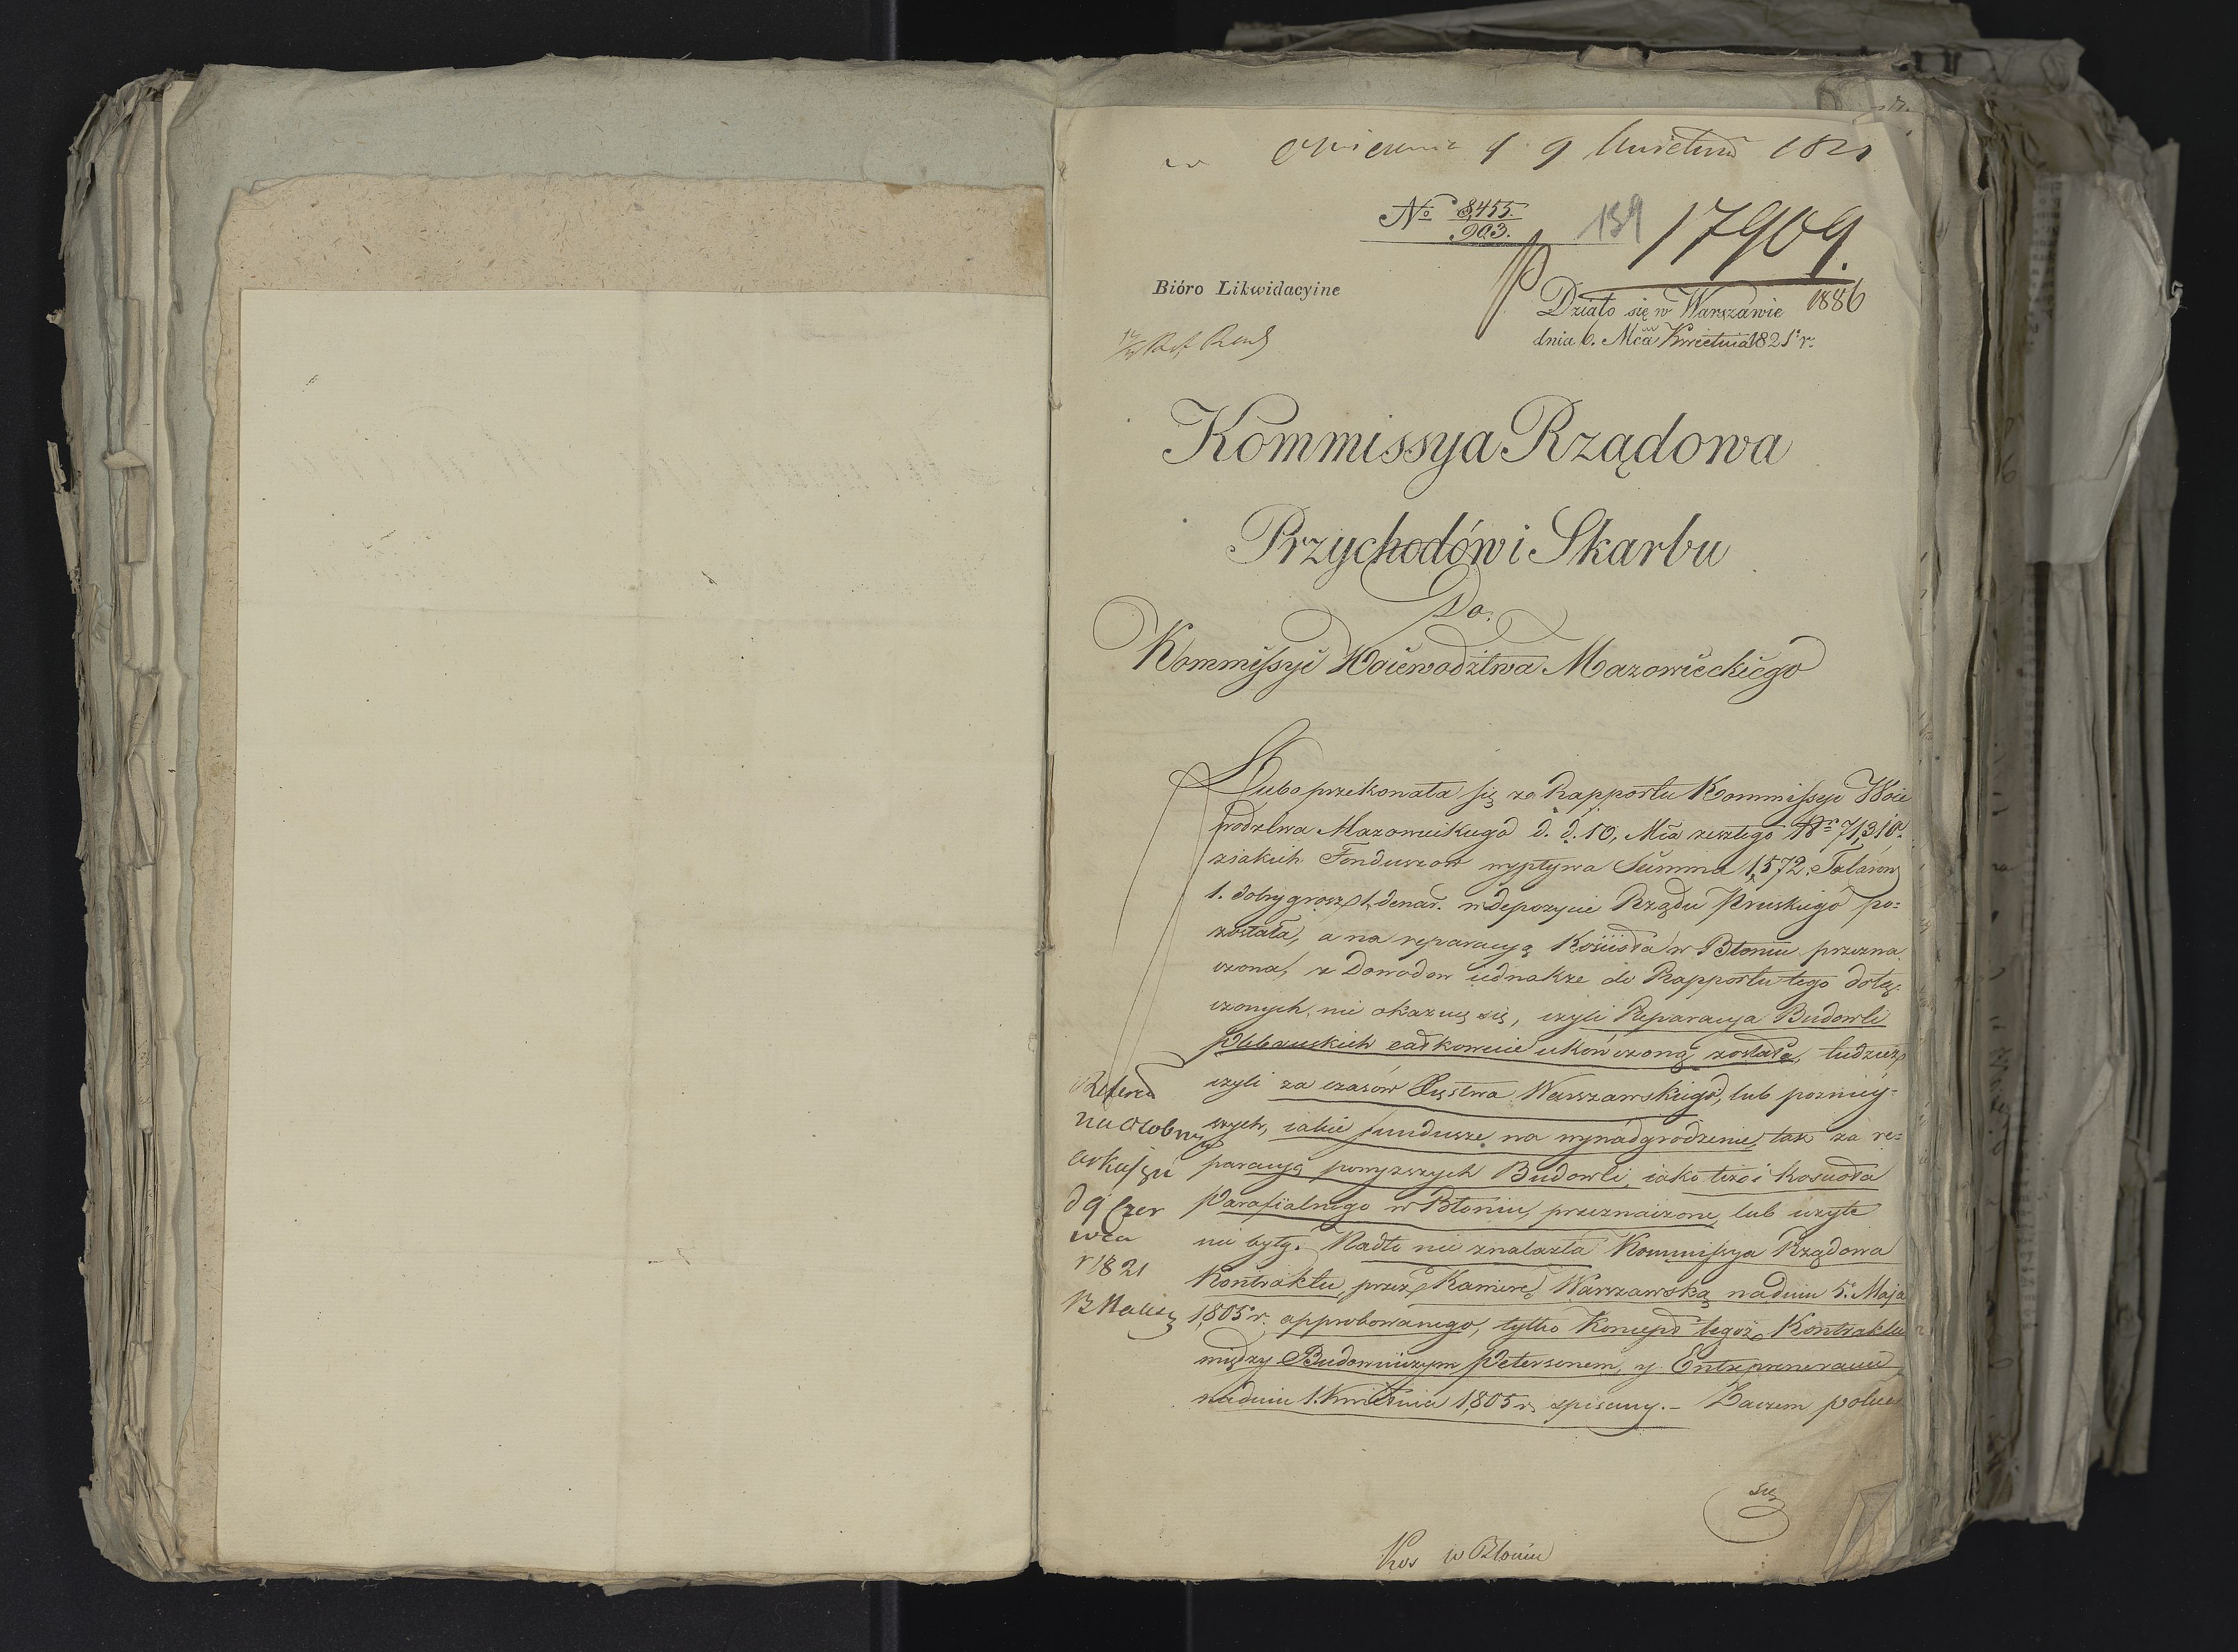 9 Kwietnia 1821
No 8,455. / 903.
139
17909.
Bióro Likwidacyine
1886
Działo się w Warszawie
dnia 6. Mca Kwietnia 1821 r:
Kommissya Rządowa
Przychodów i Skarbu
Do.
Kommissyi Woiewodztwa Mazowieckiego
Lubo przekonała się ze Rapportu Kommissyi Woie
wodztwa Mazowieckiego d. d. 10, Mca zeszłego Nr 71,310.
z iakich Funduszow wypływa Summa 1,572. Talarow
1. dobry grosz 1. denar. w depozycie Rządu Pruskiego po=
została, a na reparacyą Kościoła w Błoniu przezna
czona, z Dowodow iednakże do Rapportu tego dołą=
czonych, nie okazuię się, czyli Reparacya Budowli
Plebanskich całkowicie ukończoną została, tudzież
czyli za czasów Xięstwa Warszawskiego, lub pozniey=
szych, iakie fundusze na wynadgrodzenie tak za re=
paracyą powyzszych Budowli, iako też i Kościoła
Parafialnego w Błoniu, przeznaczone lub użyte
nie były. Nadto nie znalazła Kommissya Rządowa
Kontraktu, przez Kamerę Warszawską na dniu 5. Maja
1,805 r. approbowanego, tylko Koncept tegoż Kontraktu
między Budowniczym Petersenem, y Entreprenerami
na dniu 1. Kwietnia 1,805 r. spisany. – Zaczem poleca
się
Referat
na osobnym
arkuszu
d 9 Czer
wca
r 1821
Kos w Błoniu